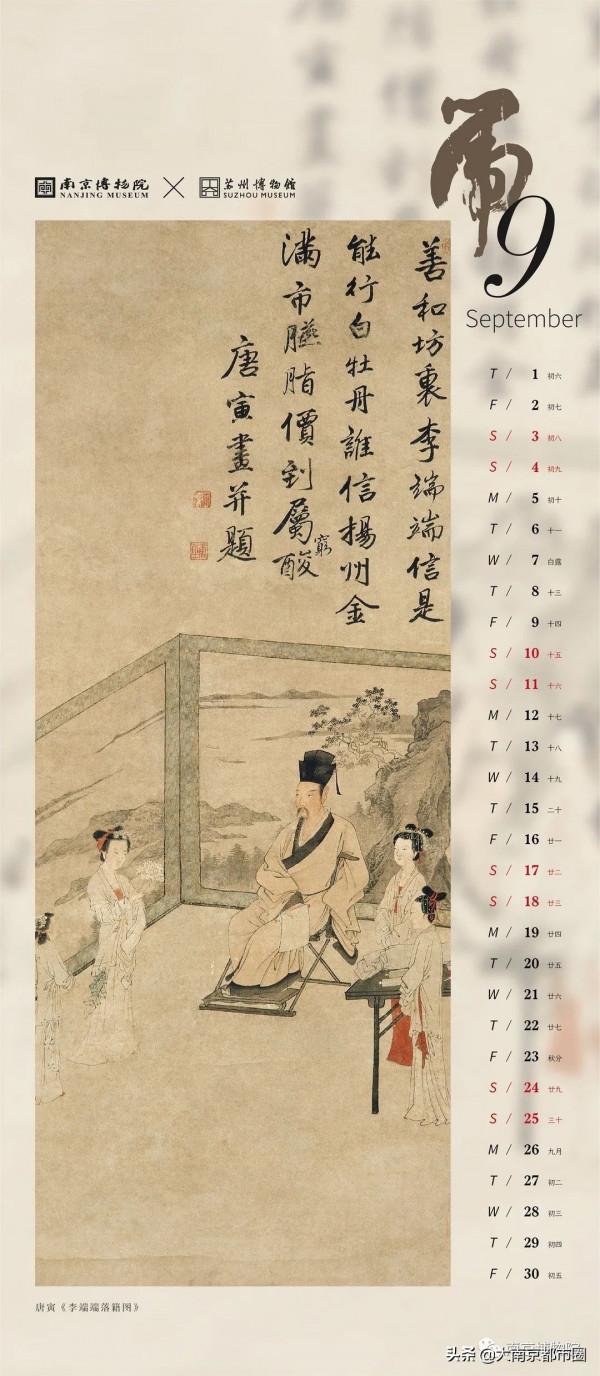 南京博物院
NANJING MUSEUM
苏州博物館
SUZHOU MUSEUM
9
September
善和坊裏李端端信是
能行白牡丹誰信揚州金
滿市臙脂價到屬窮酸
唐寅畫并題
T / 1 初六
F / 2 初七
S / 3 初八
S / 4 初九
M / 5 初十
T / 6 十一
W / 7 白露
T / 8 十三
F / 9 十四
S / 10 十五
S / 11 十六
M / 12 十七
T / 13 十八
W / 14 十九
T / 15 二十
F / 16 廿一
S / 17 廿二
S / 18 廿三
M / 19 廿四
T / 20 廿五
W / 21 廿六
T / 22 廿七
F / 23 秋分
S / 24 廿九
S / 25 三十
M / 26 九月
T / 27 初二
W / 28 初三
T / 29 初四
F / 30 初五
唐寅《李端端落籍图》
南京博物院
头条 @大南京都市圈